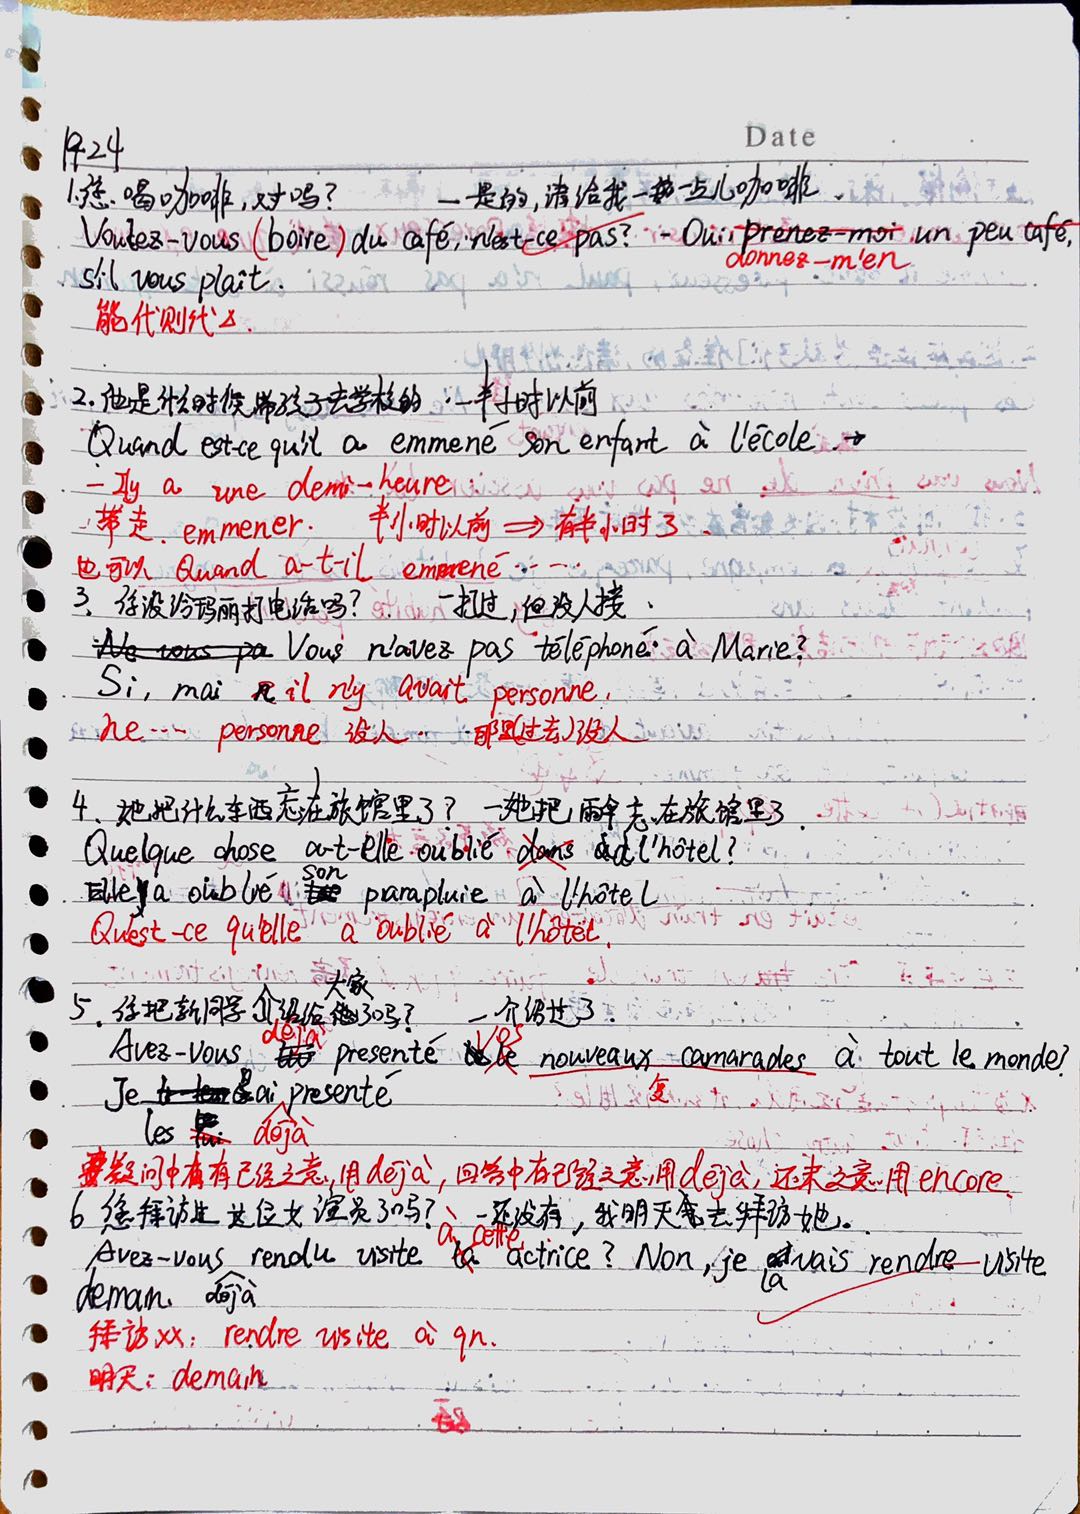 Date
1.您喝咖啡,对吗? —是的,请给我一点儿咖啡.
Voulez-vous (boire) du café, n'est-ce pas? - Oui, prenez-moi un peu café,
donnez-m'en
s'il vous plait.
能代则代
2.他是什么时候带孩子去学校的 —半小时以前
Quand est-ce qu'il a emmené son enfant à l'école
- Il y a une demi-heure.
带走. emmener. 半小时以前 ⇒ 有半小时了.
也可以 Quand a-t-il emmené ……
3. 你没给玛丽打电话吗? —打过,但没人接.
Ne vous pa Vous n'avez pas téléphoné à Marie?
Si, mai il n'y avait personne.
ne … personne 没人 那里(过去)没人
4. 她把什么东西忘在旅馆里了? —她把雨伞忘在旅馆里了.
Quelque chose a-t-elle oublié dans à l'hôtel?
son
Elle a oublié parapluie à l'hôtel
Qu'est-ce qu'elle a oublié à l'hôtel.
大家
5. 你把新同学介绍给了吗? —介绍过了.
déjà vos
Avez-vous presenté nouveaux camarades à tout le monde?
Je ai presenté 复
les déjà
疑问中有已经之意,用déjà, 回答中有已经之意,用déjà, 还未之意用encore.
6 您拜访过这位女演员了吗? —还没有,我明天会去拜访她.
à cette
Avez-vous rendu visite la actrice? Non, je vais rendre visite
la
demain. déjà
拜访xx: rendre visite à qn.
明天: demain